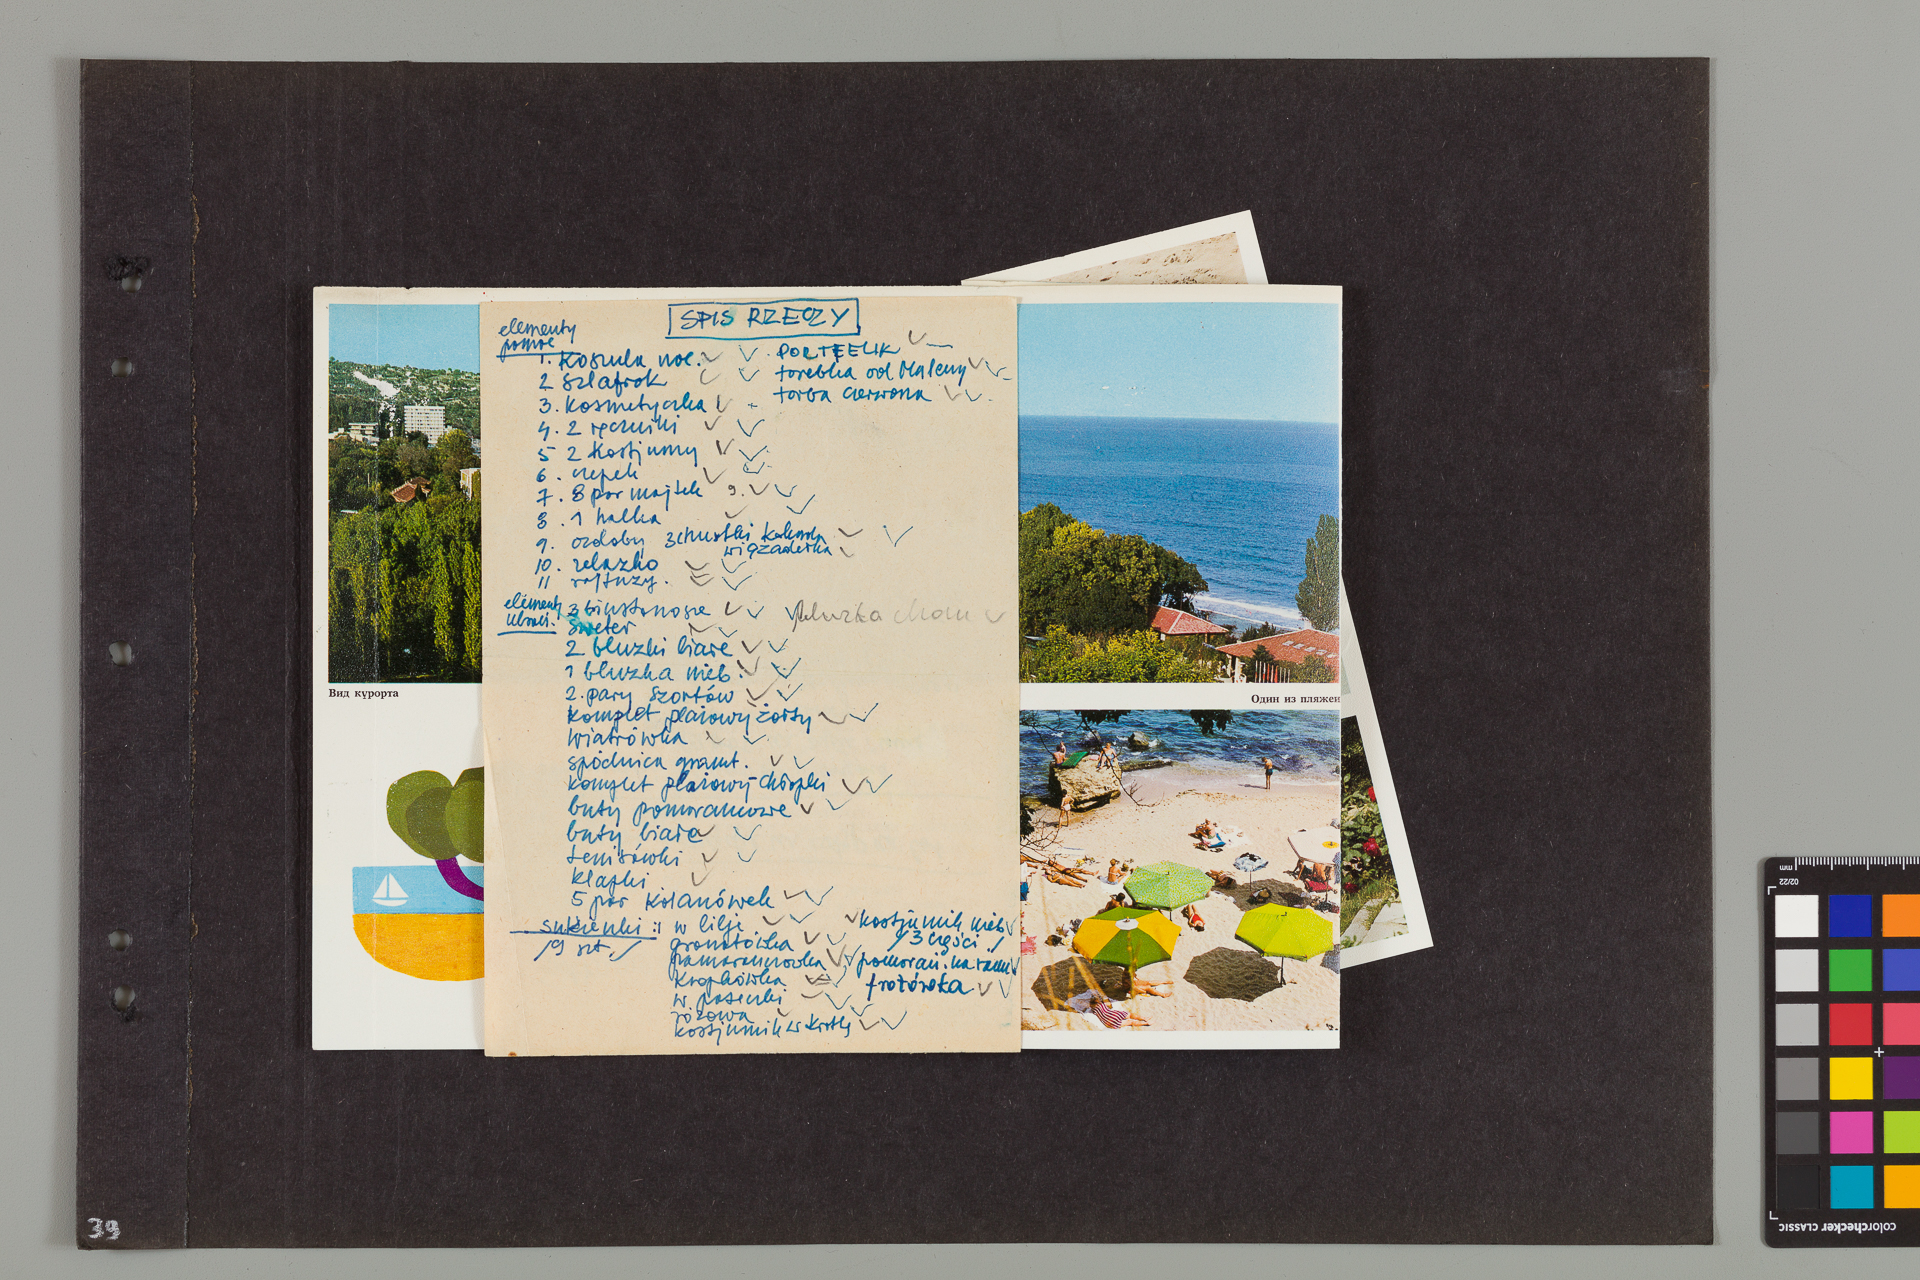 SPIS RZECZY
elementy
pomoc
1. Koszula noc.
2 szlafrok
3. kosmetyczka
4. 2 ręczniki
5 2 kostjumy
6. czepek
7. 8 par majtek 9.
8. 1 halka
9. ozdoby 3 chustki kokarda
wiązadełka
10. żelazko
11 rajtuzy.
PORTFELIK
torebka od Maleny
torba czerwona
elementy
ubrań.
3 biustonosze
sweter
bluzka
2 bluzki białe
1 bluzka nieb.
2. pary szortów
komplet plażowy żółty
wiatrówka
spódnica granat.
komplet plażowy chłopki
buty pomarańczowe
buty białe
tenisówki
klapki
5 par kolanówek
sukienki:
/9 szt./
w lilje
granatówka
pomarańczówka
kropkówka
w paseczki
różowa
kostjumik w kratkę
kostjumik nieb
/3 części/
pomarań. na ramu
frotówka
Вид курорта
Один из пляжей
39
mm
02/22
colorchecker CLASSIC